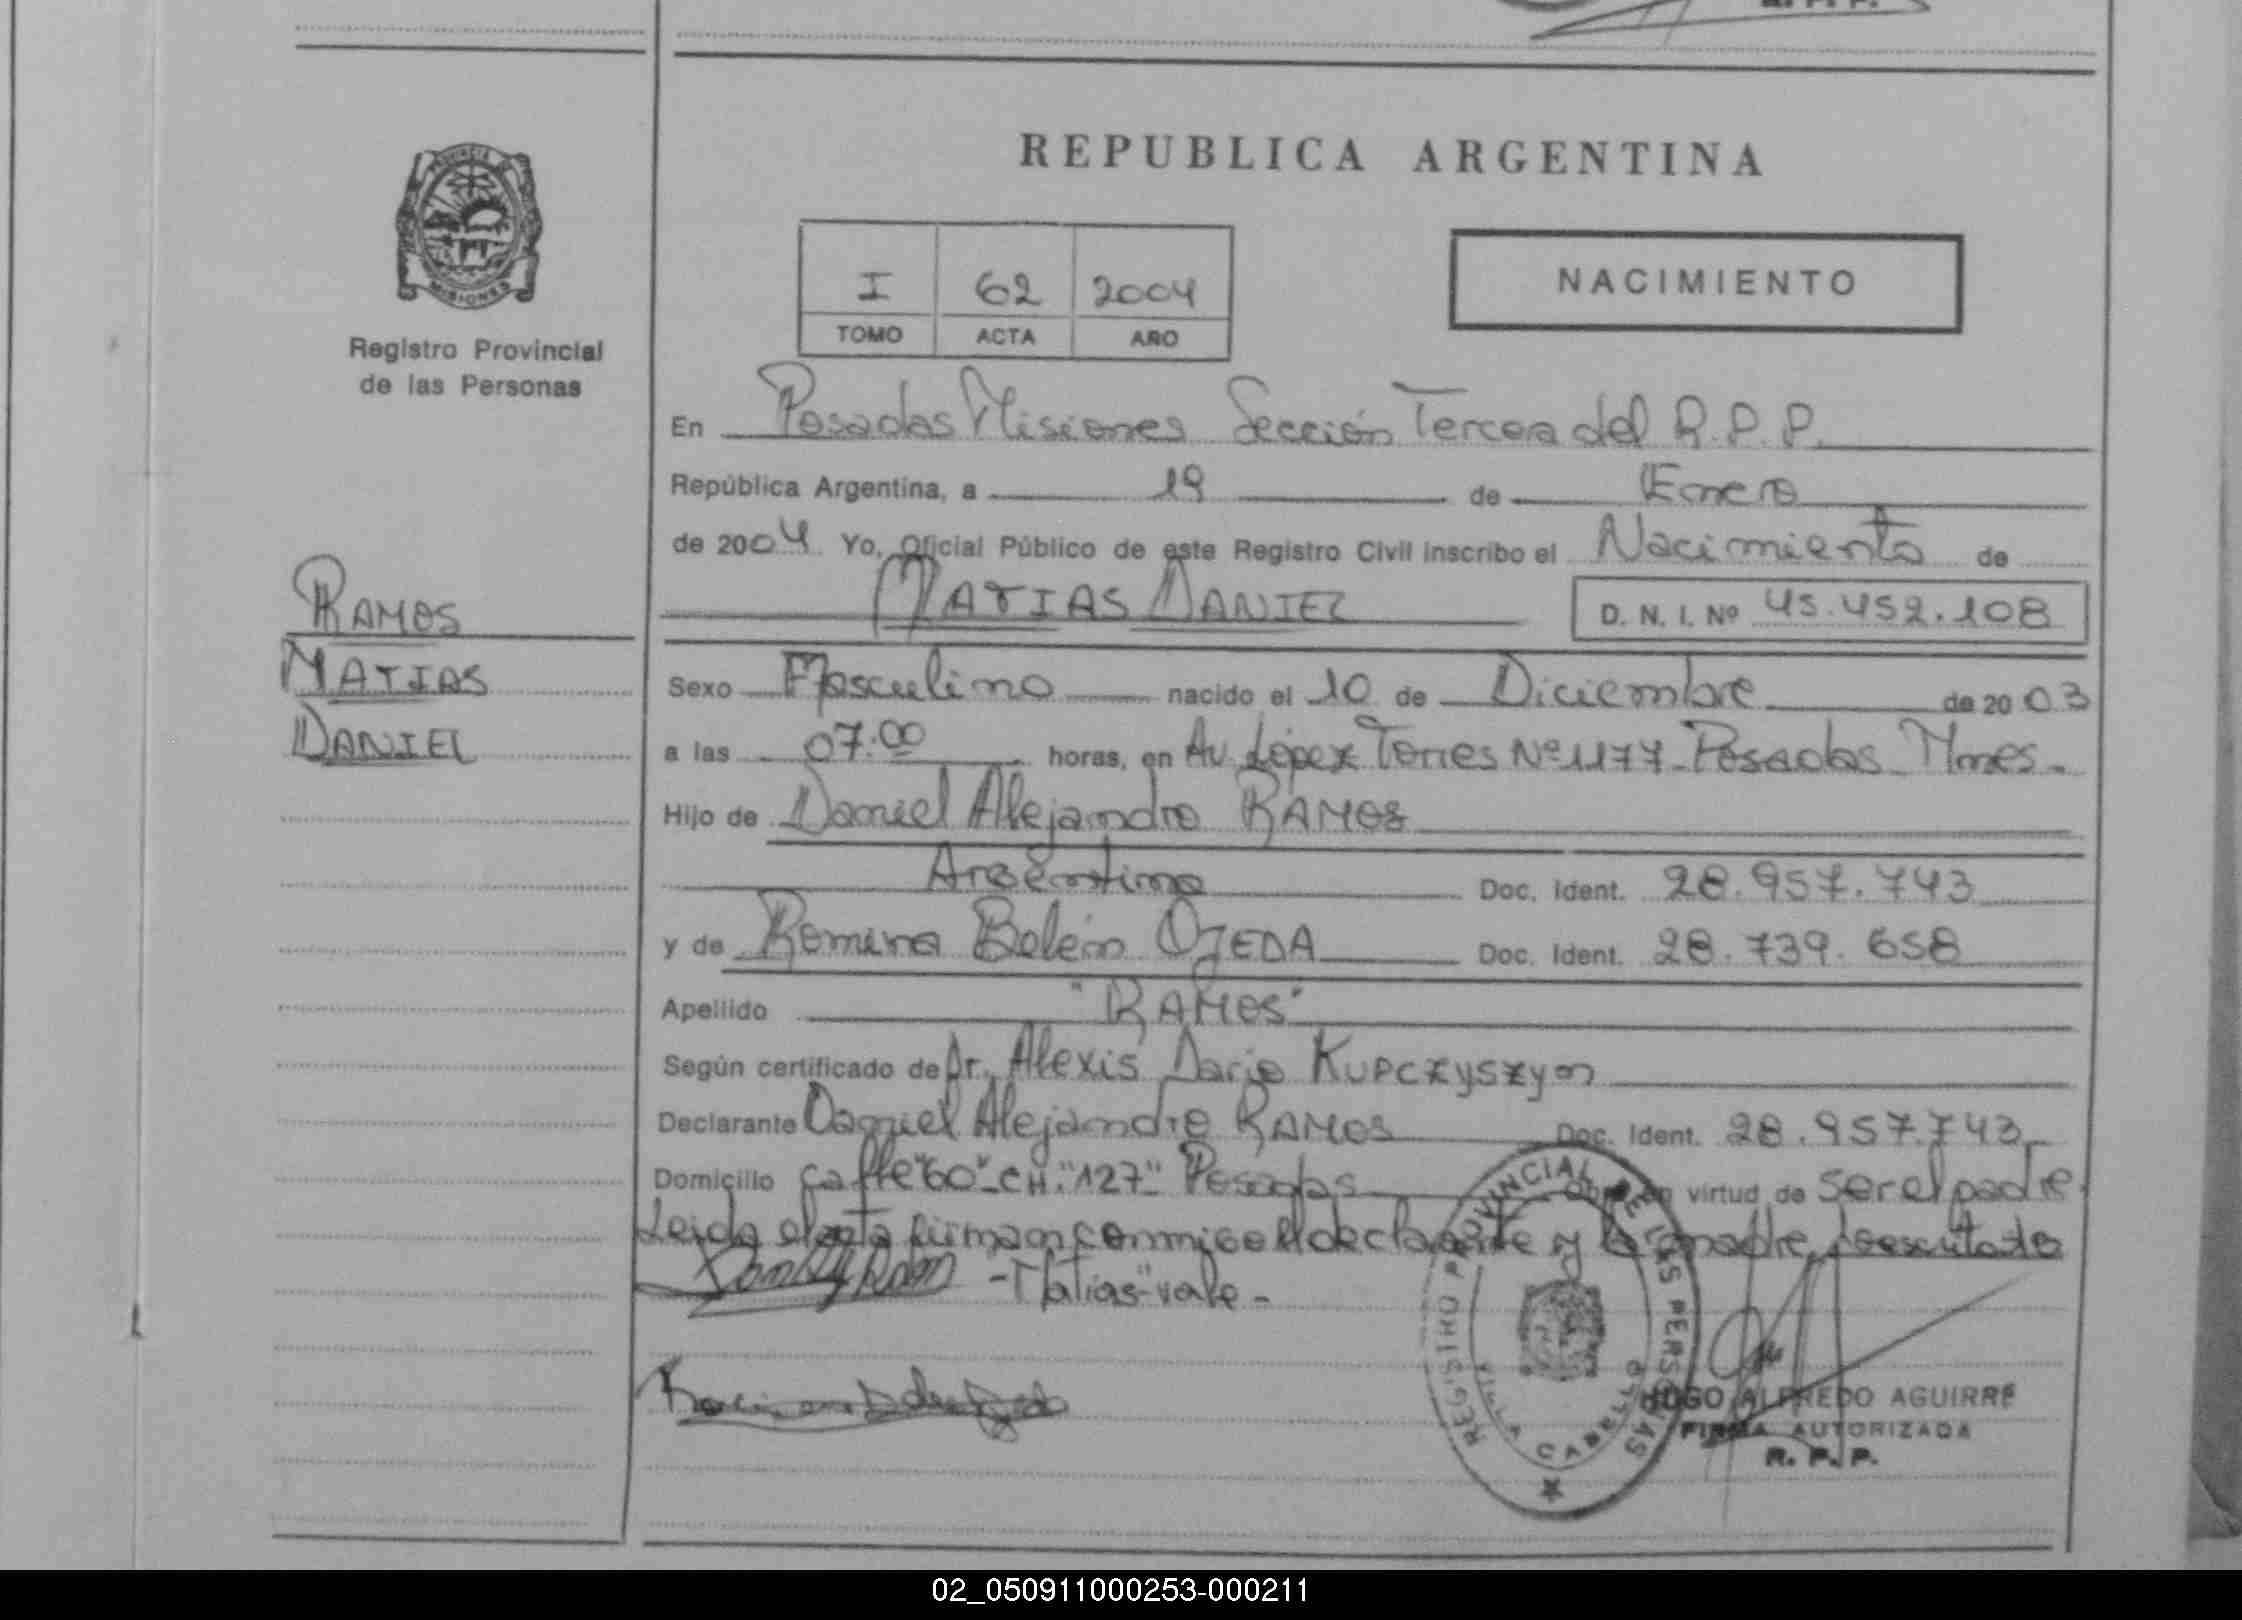 R. P. P.
PROVINCIA DE
MISIONES
Registro Provincial
de las Personas
RAMOS
MATIAS
DANIEL
REPUBLICA ARGENTINA
I 62 2004
TOMO ACTA AÑO
NACIMIENTO
En Posadas Misiones Sección Tercera del R.P.P.
República Argentina, a 19 de Enero
de 2004 Yo, Oficial Público de este Registro Civil inscribo el Nacimiento de
MATIAS DANIEL D. N. I. Nº 45.452.108
Sexo Masculino nacido el 10 de Diciembre de 2003
a las 07:00 horas, en Av. López Torres Nº 1177 - Posadas - Mnes.
Hijo de Daniel Alejandro RAMOS
Argentino Doc. Ident. 28.957.743
y de Romina Belén OJEDA Doc. Ident. 28.739.658
Apellido "RAMOS"
Según certificado de Dr. Alexis Dario KUPCZYSZYN
Declarante Daniel Alejandro RAMOS Doc. Ident. 28.957.743
Domicilio Calle "60" - CH. "127" Posadas virtud de ser el padre.
Leida el acta firman conmigo el declarante y la madre
- Matias "vale -
REGISTRO PROVINCIAL DE LAS PERSONAS
VILLA CABELLO
HUGO ALFREDO AGUIRRE
FIRMA AUTORIZADA
R. P. P.
02_050911000253-000211